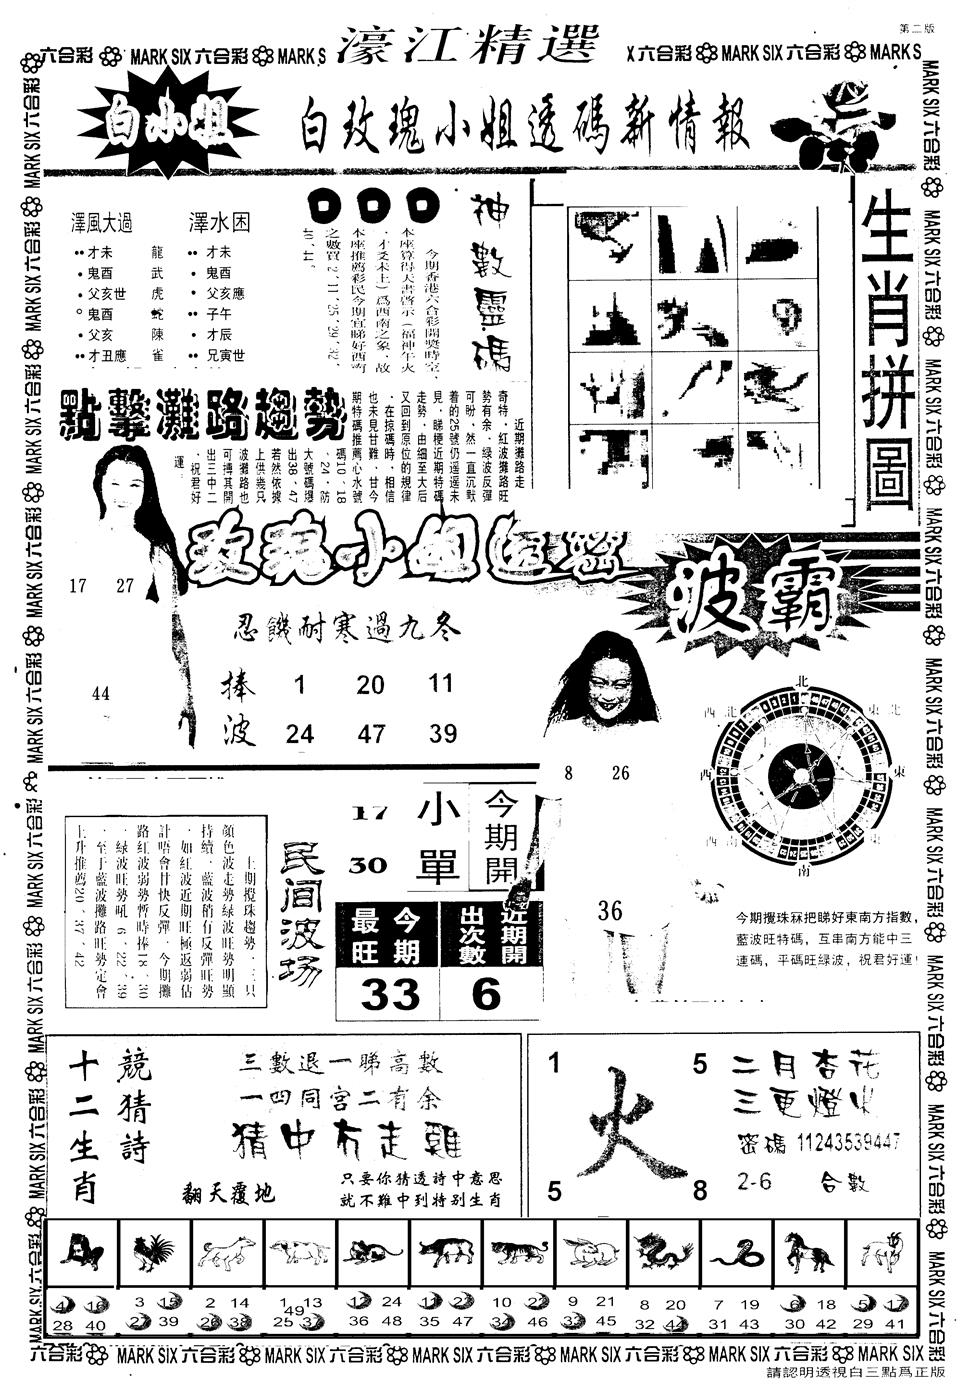 第二版
濠江精選
六合彩 MARK SIX 六合彩 MARK S
X 六合彩 MARK SIX 六合彩 MARK S
白小姐
白玫瑰小姐透碼新情報
澤風大過 澤水困
才未 龍 才未
鬼酉 武 鬼酉
父亥世 虎 父亥應
鬼酉 蛇 子午
父亥 陳 才辰
才丑應 雀 兄寅世
神數靈碼
今期香港六合彩開獎時空、
本座算得天書啓示（福神午火
、才爻未土）爲西南之象，故
本座推薦彩民今期宜睇好西南
之數買2、11、25、29、32、
40、44。
生肖拼圖
點擊灘路趨勢
近期攤路走
奇特，紅波攤路旺
勢有余，綠波反彈
可盼，然一直沉默
着的25號仍遥遥未
見，睇梗近期特碼
走勢，由細至大后
又回到原位的規律
，在掠碼時，相信
也未見甘難，甘今
期特碼推薦心水號
碼10、18
、24，防
大號碼爆
出38、47
若然依據
上供幾只
波攤路也
可搏其開
出三中二
，祝君好
運
17 27
44
玫瑰小姐透密
忍饑耐寒過九冬
捧波
1 20 11
24 47 39
波霸
8 26
36
北
東北
東
東南
南
西南
西
西北
今期攪珠冧把睇好東南方指數，
藍波旺特碼，互串南方能中三
連碼，平碼旺綠波，祝君好運！
上期攪珠趨勢，三只
顏色波走勢綠波旺勢明顯
持續，藍波稍有反彈旺勢
，如紅波近期旺極返弱估
計唔會甘快反彈，今期攤
路紅波弱勢暫時捧18、30
，綠波旺勢吼6、22、39
，至于藍波攤路旺勢定會
上升推薦20、37、42
民间波场
17
30
小單
今期開
今期最旺
33
近期開出次數
6
十二生肖
競猜詩
三數退一睇高數
一四同宮二有余
猜中冇走雞
翻天覆地
只要你猜透詩中意思
就不難中到特別生肖
1 5
火
5 8
二月杏花
三更燈火
密碼 11243539447
2-6 合數
4 16 28 40
3 15 27 39
2 14 26 38
1 13 25 37 49
12 24 36 48
11 23 35 47
10 22 34 46
9 21 33 45
8 20 32 44
7 19 31 43
6 18 30 42
5 17 29 41
六合彩 MARK SIX 六合彩 MARK SIX 六合彩 MARK SIX 六合彩 MARK SIX 六合彩 MARK SIX 六合彩 MARK SIX
請認明透視白三點爲正版